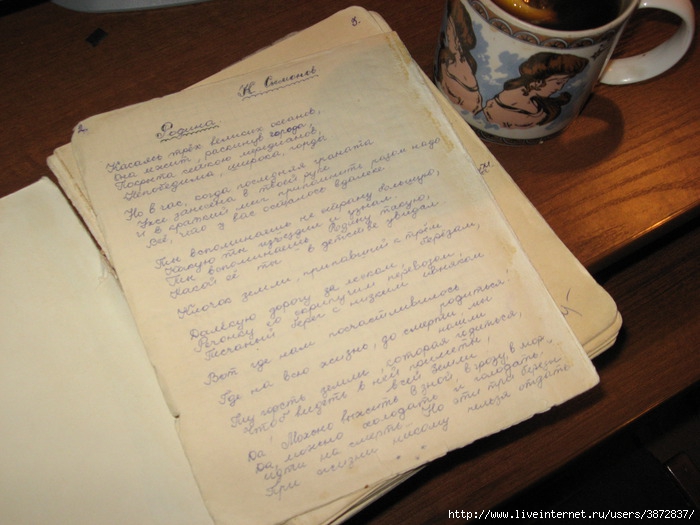 3.
2.
К Симонов
Родина.
Касаясь трёх великих океанов,
Она лежит, раскинув города,
Покрыта сеткою меридианов,
Непобедима, широка, горда
Но в час, когда последняя граната
Уже занесена в твоей руке
И в краткий миг припомнить разом надо
Всё, что у вас осталось вдалеке
Ты вспоминаешь не страну большую,
Какую ты изъездил и узнал
Ты вспоминаешь Родину такую,
Какой её ты в детстве увидал
Клочок земли, припавший к трём
берёзам,
Далёкую дорогу за леском,
Речонку со скрипучим перевозом,
Песчаный берег с низким ивняком
Вот где нам посчастливилось
родиться,
Где на всю жизнь, до смерти, мы
нашли
Ту горсть земли, которая годиться,
Чтоб видеть в ней приметы
всей земли
Да! Можно выжить в зной, в грозу, в мор.
Да, можно холодать и голодать,
Идти на смерть... Но эти три березы
При жизни никому нельзя отдать
http://www.liveinternet.ru/users/3872837/